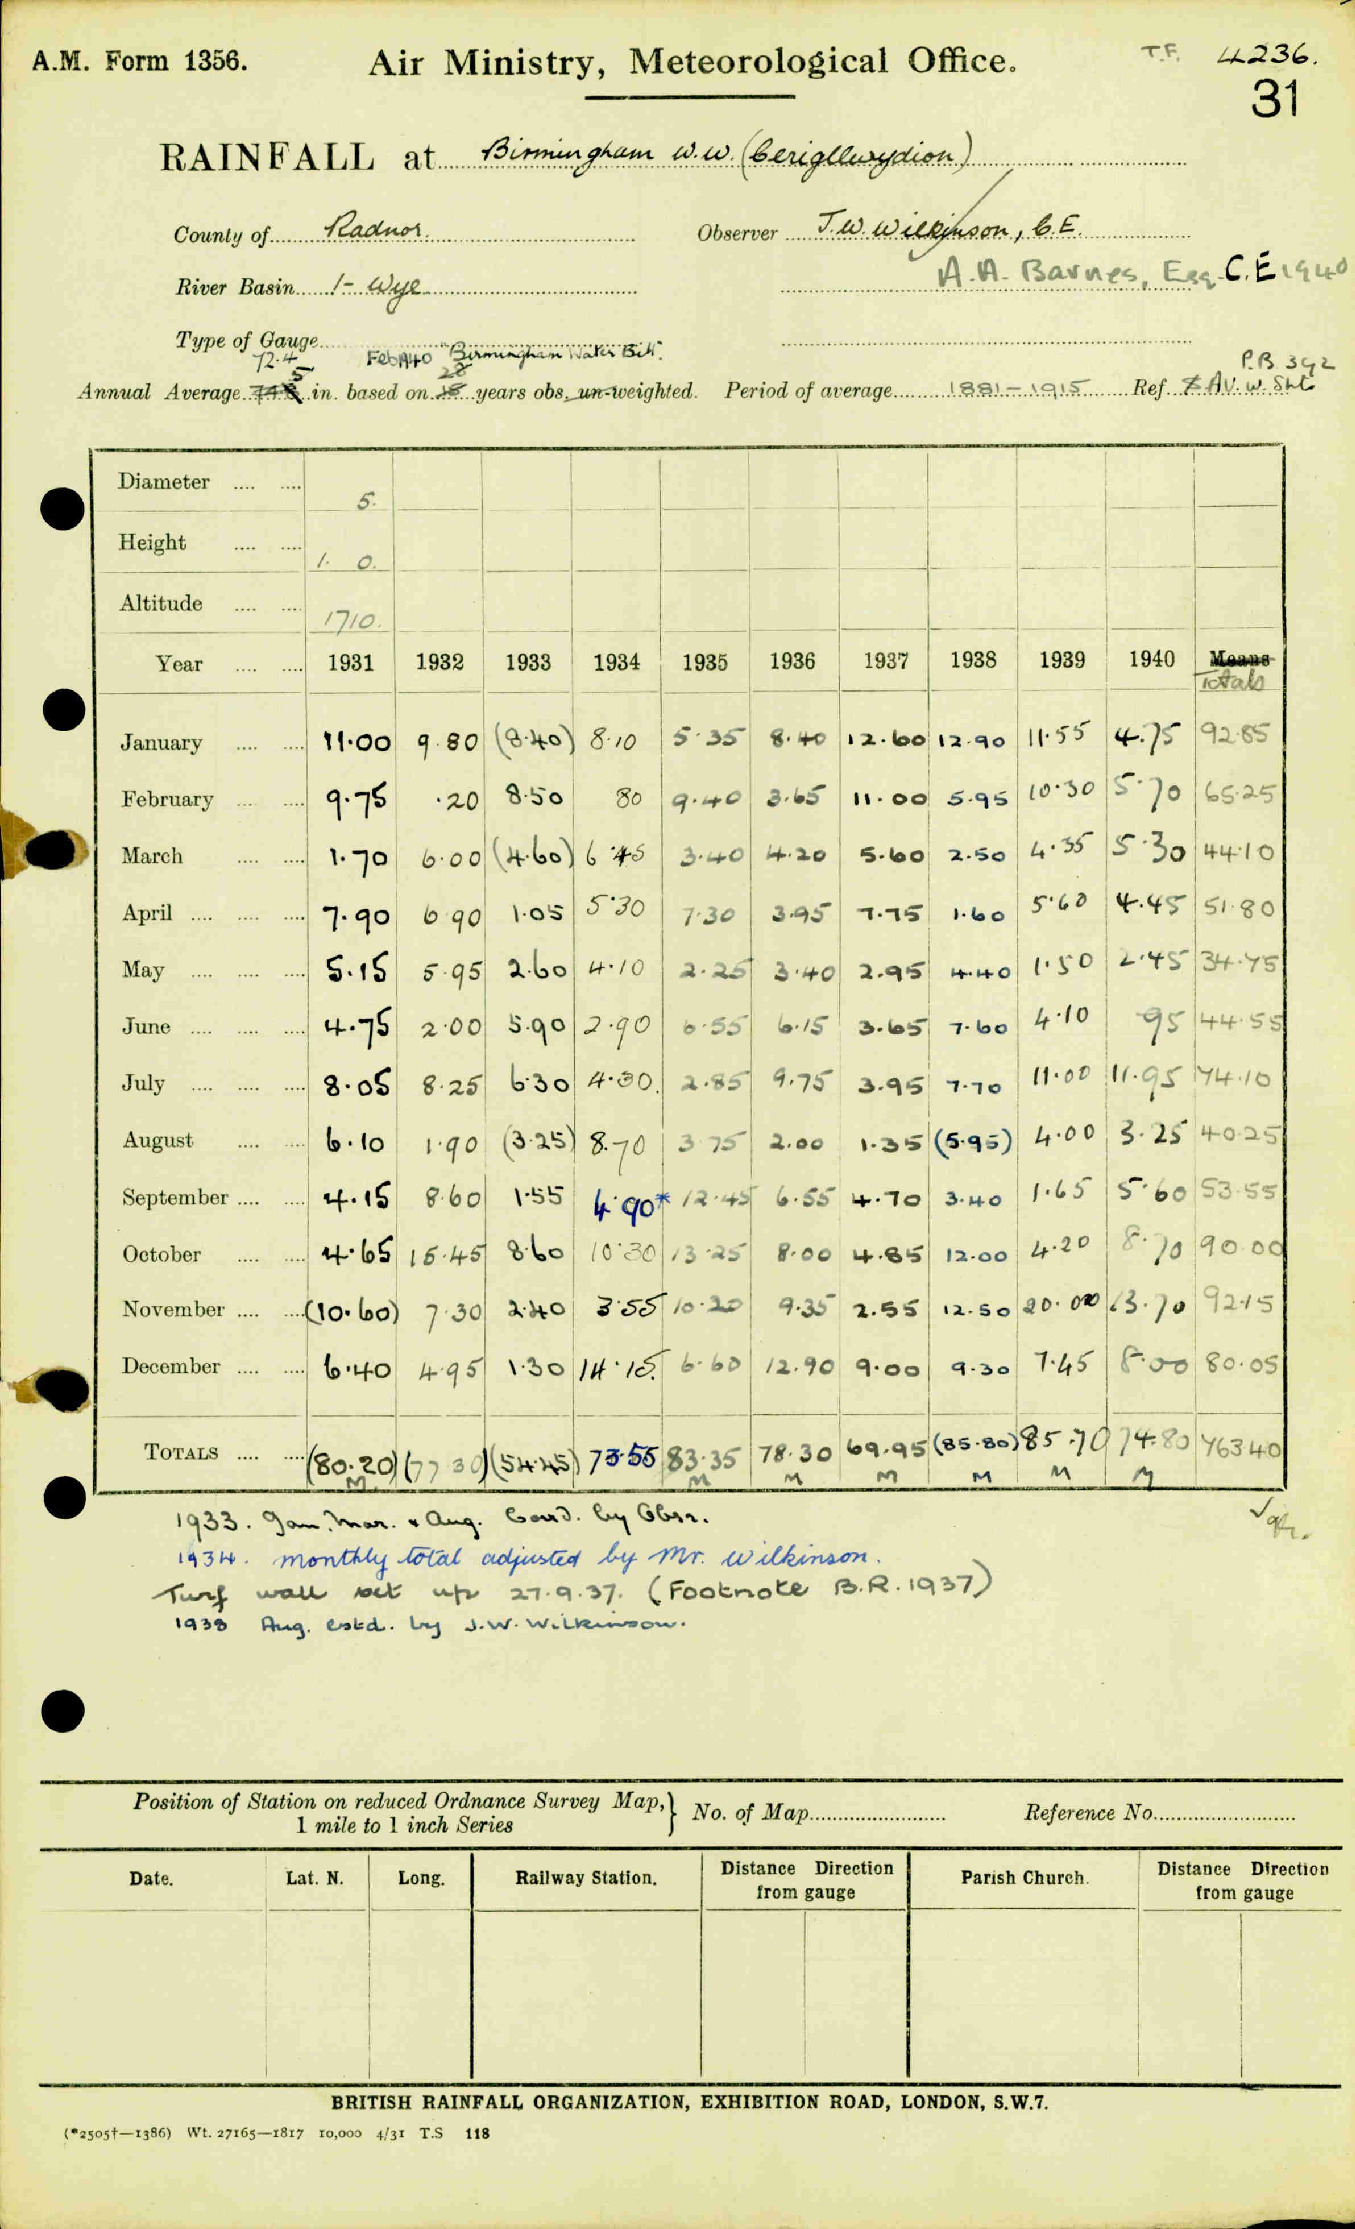 A.M. Form 1356. Air Ministry, Meteorological Office. T.F. 4236.
31
RAINFALL at Birmingham W.W. (Cerigllwydion)
County of Radnor. Observer J.W. Wilkinson, C.E.
River Basin 1- Wye A.A. Barnes, Esq C.E 1940
Type of Gauge
72.4 Feb 1940 "Birmingham Water Bill". P.B. 392
5 28
Annual Average in. based on 18 years obs. un-weighted. Period of average 1881-1915 Ref. Av. W. Sht
Diameter .... .... 5.
Height .... .... 1. 0.
Altitude .... .... 1710.
Year .... .... 1931 1932 1933 1934 1935 1936 1937 1938 1939 1940 Means
Totals
January .... .... 11.00 9.80 (8.40) 8.10 5.35 8.40 12.60 12.90 11.55 4.75 92.85
February .... .... 9.75 .20 8.50 80 9.40 3.65 11.00 5.95 10.30 5.70 65.25
March .... .... 1.70 6.00 (4.60) 6.45 3.40 4.20 5.60 2.50 4.35 5.30 44.10
April .... .... .... 7.90 6.90 1.05 5.30 7.30 3.95 7.75 1.60 5.60 4.45 51.80
May .... .... .... 5.15 5.95 2.60 4.10 2.25 3.40 2.95 4.40 1.50 2.45 34.75
June .... .... .... 4.75 2.00 5.90 2.90 6.55 6.15 3.65 7.60 4.10 95 44.55
July .... .... .... 8.05 8.25 6.30 4.30. 2.85 9.75 3.95 7.70 11.00 11.95 74.10
August .... .... 6.10 1.90 (3.25) 8.70 3.75 2.00 1.35 (5.95) 4.00 3.25 40.25
September .... .... 4.15 8.60 1.55 4.90* 12.45 6.55 4.70 3.40 1.65 5.60 53.55
October .... .... 4.65 15.45 8.60 10.30 13.25 8.00 4.85 12.00 4.20 8.70 90.00
November .... .... (10.60) 7.30 2.40 3.55 10.20 9.35 2.55 12.50 20.00 13.70 92.15
December .... .... 6.40 4.95 1.30 14.15. 6.60 12.90 9.00 9.30 7.45 8.00 80.05
TOTALS .... .... (80.20) (77.30) (54.45) 73.55 83.35 78.30 69.95 (85.80) 85.70 74.80 763.40
M M M M M M M
1933. Jan. Mar. & Aug. Cord. by Obsr.
1934. monthly total adjusted by Mr. Wilkinson.
Turf wall set up 27.9.37. (Footnote B.R. 1937)
1938 Aug. estd. by J.W. Wilkinson.
Position of Station on reduced Ordnance Survey Map, 1 mile to 1 inch Series } No. of Map Reference No.
Date. Lat. N. Long. Railway Station. Distance Direction from gauge Parish Church. Distance Direction from gauge
BRITISH RAINFALL ORGANIZATION, EXHIBITION ROAD, LONDON, S.W.7.
(*2505†—1386) Wt. 27165—1817 10,000 4/31 T.S 118